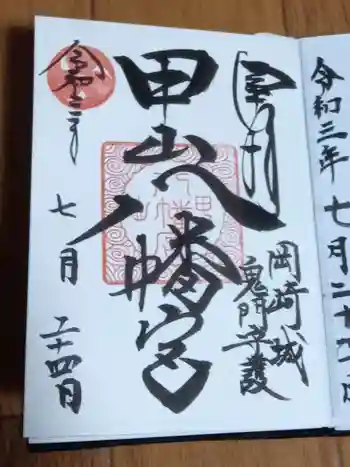 令和三年
七月二十
奉拝
岡崎城
鬼門守護
甲山八幡宮
令和三年
七月
二十四日